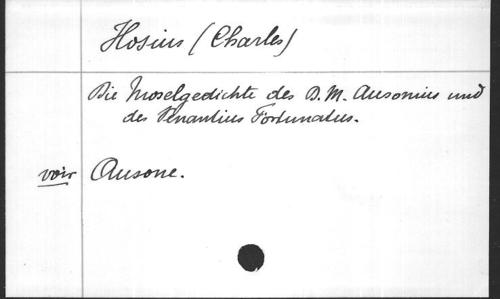 Hosius (Charles)
Die Moselgedichte des D. M. Ausonius und
des Venantius Fortunatus.
voir Ausone.